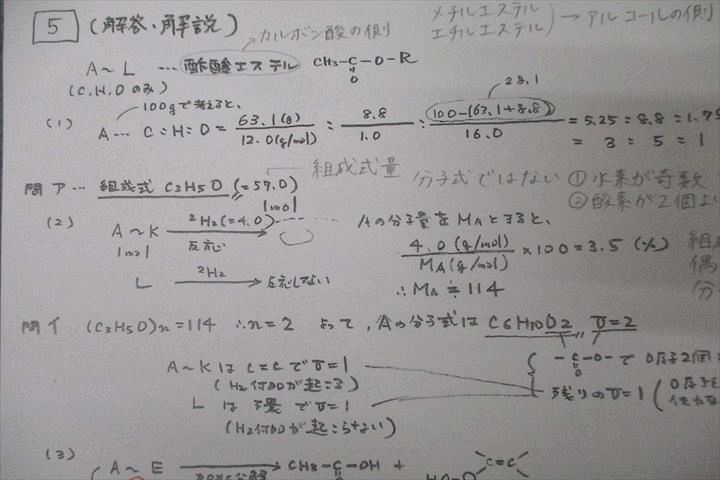 5 (解答・解説)
カルボン酸の側
メチルエステル
エチルエステル → アルコールの側
A~L … 酢酸エステル CH3-C-O-R
O
(C,H,Oのみ)
100gで考えると、
28.1
(1) A… C:H:O = 63.1(g)/12.0(g/mol) : 8.8/1.0 : 100-(63.1+8.8)/16.0 = 5.25:8.8:1.75
= 3:5:1
問ア… 組成式 C3H5O (=57.0)
組成式量
分子式ではない ①水素が奇数
②酸素が2個
1mol
(2) A~K 2H2(=4.0) 反応
1mol
L 2H2 反応しない
Aの分子量をMAとすると、
4.0(g/mol)/MA(g/mol) ×100=3.5 (%)
∴MA≒114
問イ (C3H5O)n=114 ∴n=2 よって, Aの分子式は C6H10O2, U=2
A~Kは C=CでU=1
(H2付加が起こる)
Lは 環でU=1
(H2付加が起こらない)
-C-O- で O原子2個
O
残りのU=1
(3)
A~E → CH3-C-OH +
O
C=C
HO